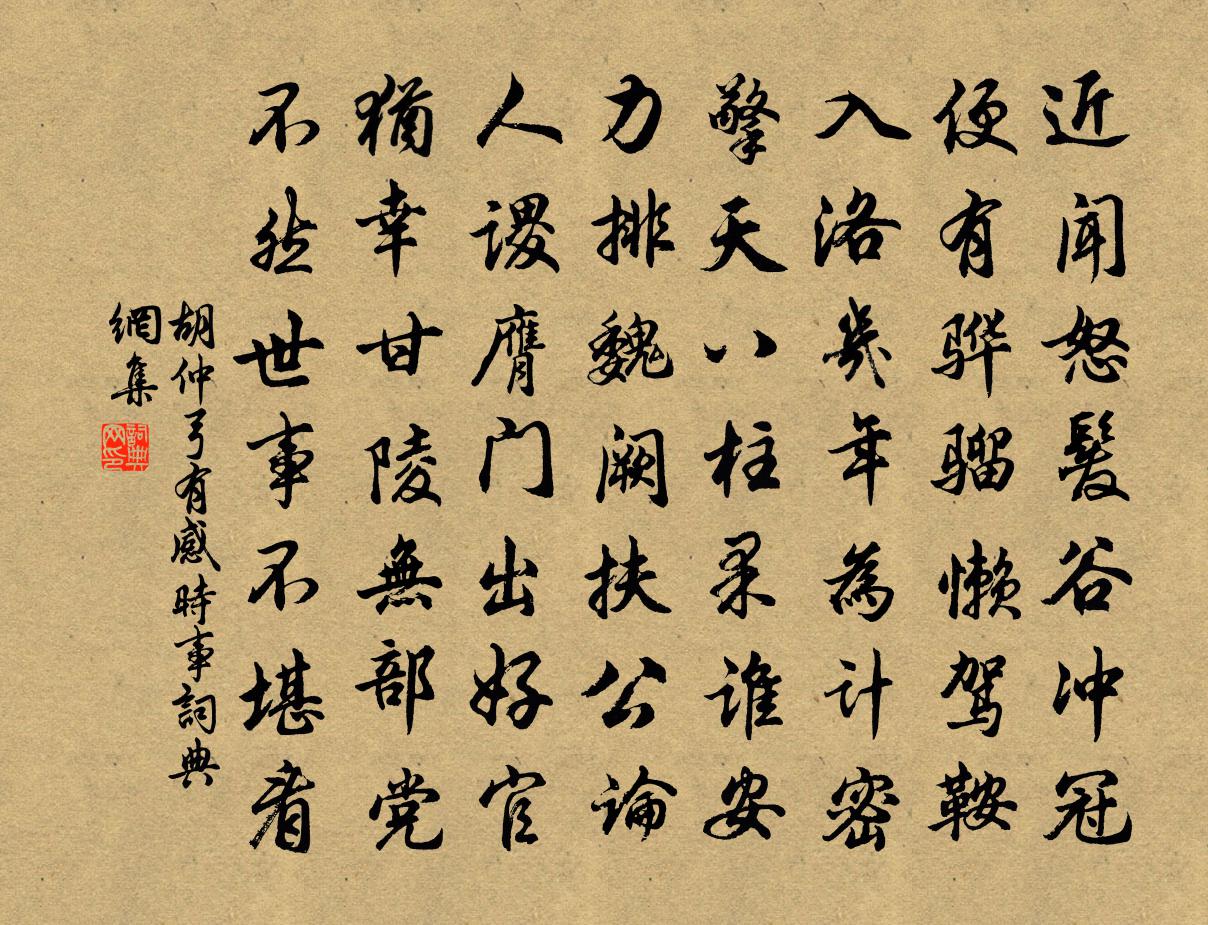 近闻怒髮谷冲冠
便有骅骝懒驾鞍
入洛幾年為计密
擎天八柱果谁安
力排魏阙扶公論
人谡膺门出好官
猶幸甘陵無部党
不然世事不堪看
胡仲弓有感時事詞典
網集
詞典
网印